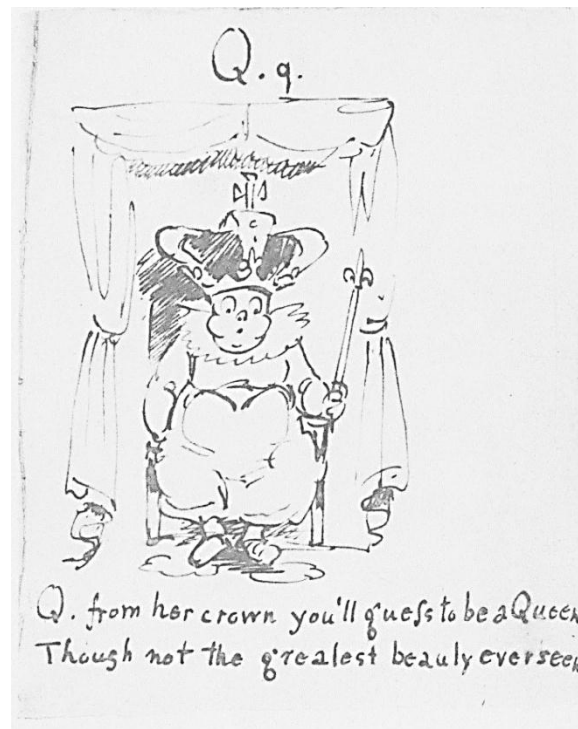 Q. q.
Q. from her crown you'll guess to be a Queen
Though not the greatest beauty ever seen